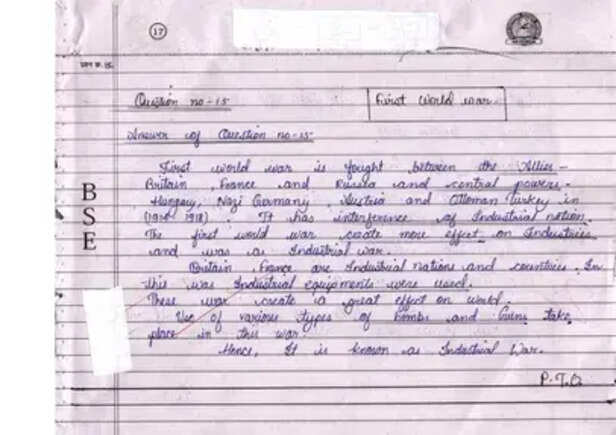 17
Question no - 15
First world war.
Answer of Question no - 15
First world war is fought between the Allies -
Britain, France and Russia and central powers -
Hungary, Nazi Germany, Austria and Ottoman turkey in
(1914 - 1918). It has interference of Industrial nation.
The first world war create more effect on Industries
and was a Industrial war.
Britain, France are Industrial nations and countries. In
this war Industrial equipments were used.
These war create a great effect on world.
Use of various types of bombs and Guns take
place in this war.
Hence, It is known as Industrial War.
P.T.O.
B
S
E